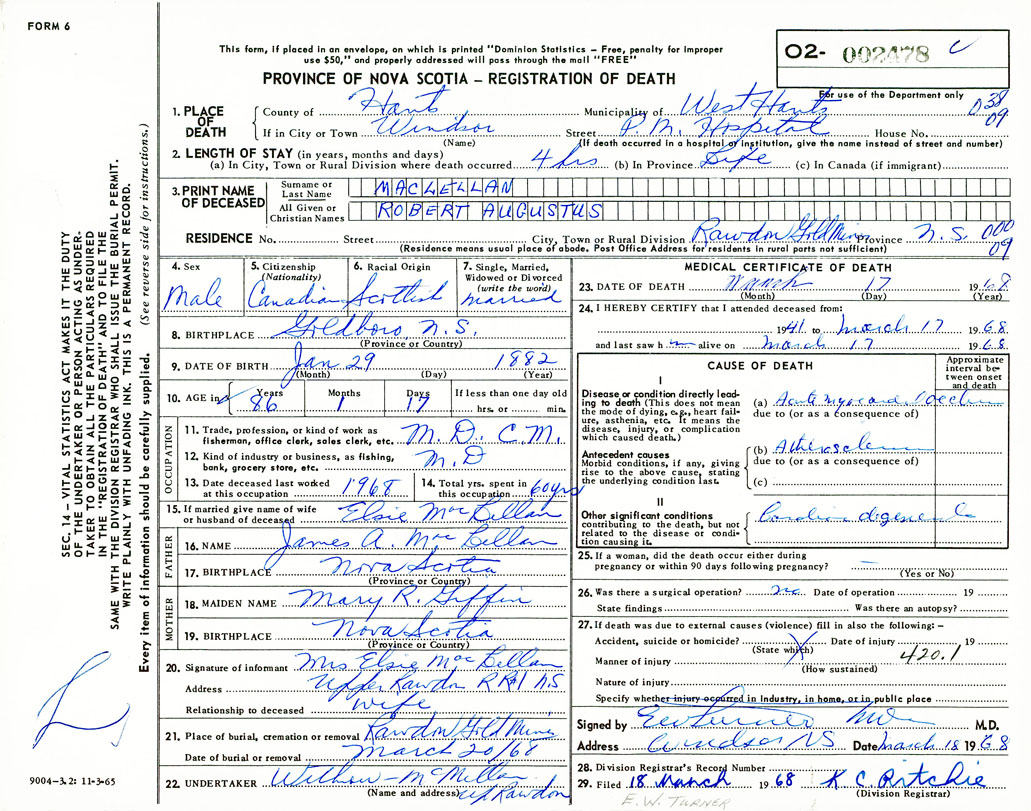 FORM 6
This form, if placed in an envelope, on which is printed "Dominion Statistics – Free, penalty for improper
use $50," and properly addressed will pass through the mail "FREE"
PROVINCE OF NOVA SCOTIA – REGISTRATION OF DEATH
O2- 002478 C
For use of the Department only
038
09
1. PLACE OF DEATH
County of Hants Municipality of West Hants
If in City or Town Windsor Street P. M. Hospital House No.
(Name) (If death occurred in a hospital or institution, give the name instead of street and number)
2. LENGTH OF STAY (in years, months and days)
(a) In City, Town or Rural Division where death occurred 4 hrs (b) In Province Life (c) In Canada (if immigrant)
3. PRINT NAME OF DECEASED
Surname or Last Name MACLELLAN
All Given or Christian Names ROBERT AUGUSTUS
RESIDENCE No. Street City, Town or Rural Division Rawdon Gold Mines Province N.S. 000
09
(Residence means usual place of abode. Post Office Address for residents in rural parts not sufficient)
4. Sex
Male
5. Citizenship
(Nationality)
Canadian
6. Racial Origin
Scottish
7. Single, Married,
Widowed or Divorced
(write the word)
married
8. BIRTHPLACE Goldboro, N.S.
(Province or Country)
9. DATE OF BIRTH Jan 29 1882
(Month) (Day) (Year)
10. AGE in Years Months Days If less than one day old
86 1 17 hrs. or min.
OCCUPATION
11. Trade, profession, or kind of work as
fisherman, office clerk, sales clerk, etc. M.D., C.M.
12. Kind of industry or business, as fishing,
bank, grocery store, etc. M.D
13. Date deceased last worked
at this occupation 1968
14. Total yrs. spent in
this occupation 60 yrs
15. If married give name of wife
or husband of deceased Elsie MacLellan
FATHER
16. NAME James A. MacLellan
17. BIRTHPLACE Nova Scotia
(Province or Country)
MOTHER
18. MAIDEN NAME Mary R. Giffin
19. BIRTHPLACE Nova Scotia
(Province or Country)
20. Signature of informant Mrs Elsie MacLellan
Address Upper Rawdon RR1 N.S
Relationship to deceased wife
21. Place of burial, cremation or removal Rawdon Gold Mines
Date of burial or removal March 20/68
22. UNDERTAKER McMillan
(Name and address) Up Rawdon
MEDICAL CERTIFICATE OF DEATH
23. DATE OF DEATH March 17 1968
(Month) (Day) (Year)
24. I HEREBY CERTIFY that I attended deceased from:
1941 to March 17 1968
and last saw him alive on March 17 1968
CAUSE OF DEATH
Approximate
interval be-
tween onset
and death
I
Disease or condition directly lead-
ing to death (This does not mean
the mode of dying, e.g., heart fail-
ure, asthenia, etc. It means the
disease, injury, or complication
which caused death.)
(a) Acute
due to (or as a consequence of)
Antecedent causes
Morbid conditions, if any, giving
rise to the above cause, stating
the underlying condition last.
(b)
due to (or as a consequence of)
(c)
II
Other significant conditions
contributing to the death, but not
related to the disease or condi-
tion causing it.
25. If a woman, did the death occur either during
pregnancy or within 90 days following pregnancy? —
(Yes or No)
26. Was there a surgical operation? no Date of operation 19
State findings Was there an autopsy?
27. If death was due to external causes (violence) fill in also the following: –
Accident, suicide or homicide? Date of injury 19
(State which)
420.1
Manner of injury
(How sustained)
Nature of injury
Specify whether injury occurred in Industry, in home, or in public place
Signed by E W Turner MD M.D.
Address Windsor NS Date March 18 1968
28. Division Registrar's Record Number
29. Filed 18 March 1968 K C Ritchie
(Division Registrar)
E. W. TURNER
SEC. 14 – VITAL STATISTICS ACT MAKES IT THE DUTY
OF THE UNDERTAKER OR PERSON ACTING AS UNDER-
TAKER TO OBTAIN ALL THE PARTICULARS REQUIRED
IN THE "REGISTRATION OF DEATH" AND TO FILE THE
SAME WITH THE DIVISION REGISTRAR WHO SHALL ISSUE THE BURIAL PERMIT.
WRITE PLAINLY WITH UNFADING INK. THIS IS A PERMANENT RECORD.
Every item of information should be carefully supplied. (See reverse side for instructions.)
9004-3.2: 11-3-65